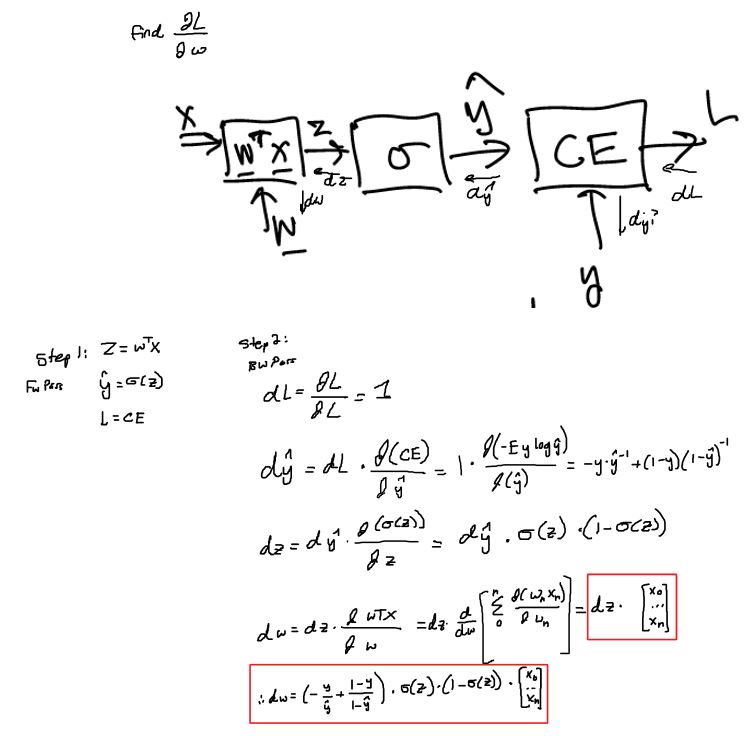 Find ∂L/∂w
X → wᵀx → z → σ → ŷ → CE → L
dz dw dŷ dy? dL
w y
Step 1: Z = wᵀX
Fw Pass
ŷ = σ(z)
L = CE
Step 2:
BW Pass
dL = ∂L/∂L = 1
dŷ = dL · ∂(CE)/∂ŷ = 1 · ∂(-E y log ŷ)/∂(ŷ) = -y·ŷ⁻¹ + (1-y)(1-ŷ)⁻¹
dz = dŷ · ∂(σ(z))/∂z = dŷ · σ(z) · (1-σ(z))
dw = dz · ∂ wTX/∂ w = dz · d/dw [Σ₀ⁿ ∂(wₙxₙ)/∂wₙ] = dz · [x₀ ... xₙ]
∴ dw = (-y/ŷ + 1-y/1-ŷ) · σ(z) · (1-σ(z)) · [x₀ ... xₙ]